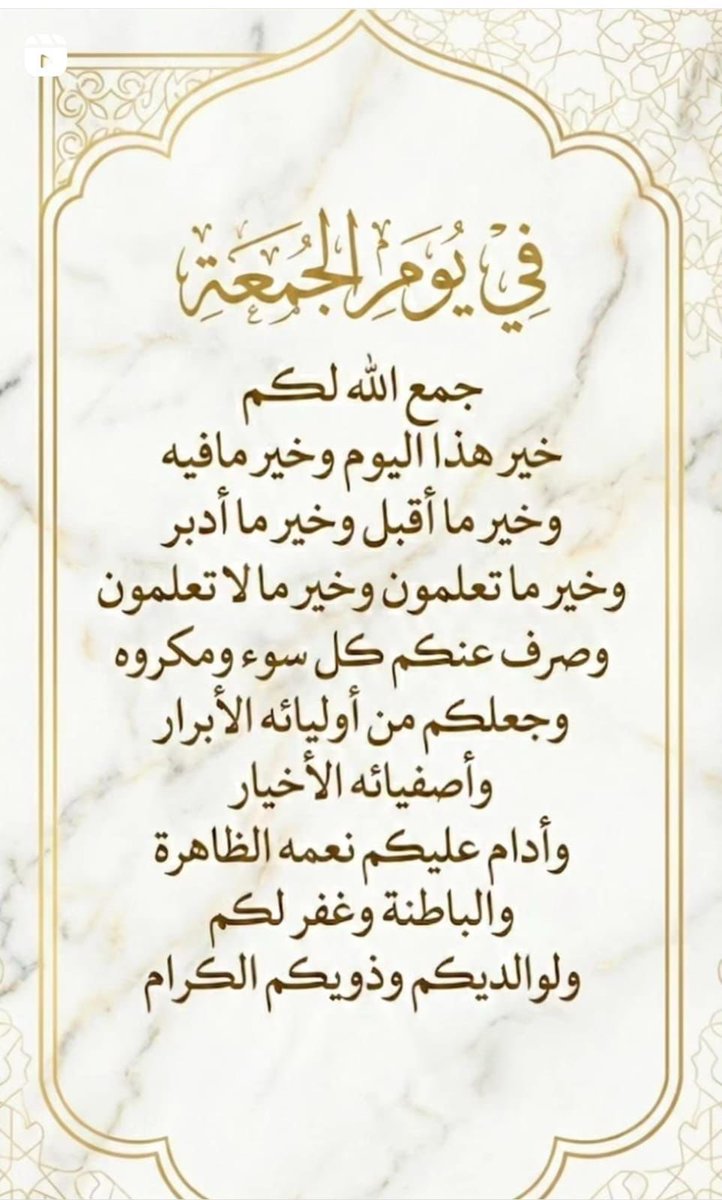 في يُومِ الجُمُعَةِ
جمع الله لكم
خير هذا اليوم وخير مافيه
وخير ما أقبل وخير ما أدبر
وخير ما تعلمون وخير ما لا تعلمون
وصرف عنكم كل سوء ومكروه
وجعلكم من أوليائه الأبرار
وأصفيائه الأخيار
وأدام عليكم نعمه الظاهرة
والباطنة وغفر لكم
ولوالديكم وذويكم الكرام